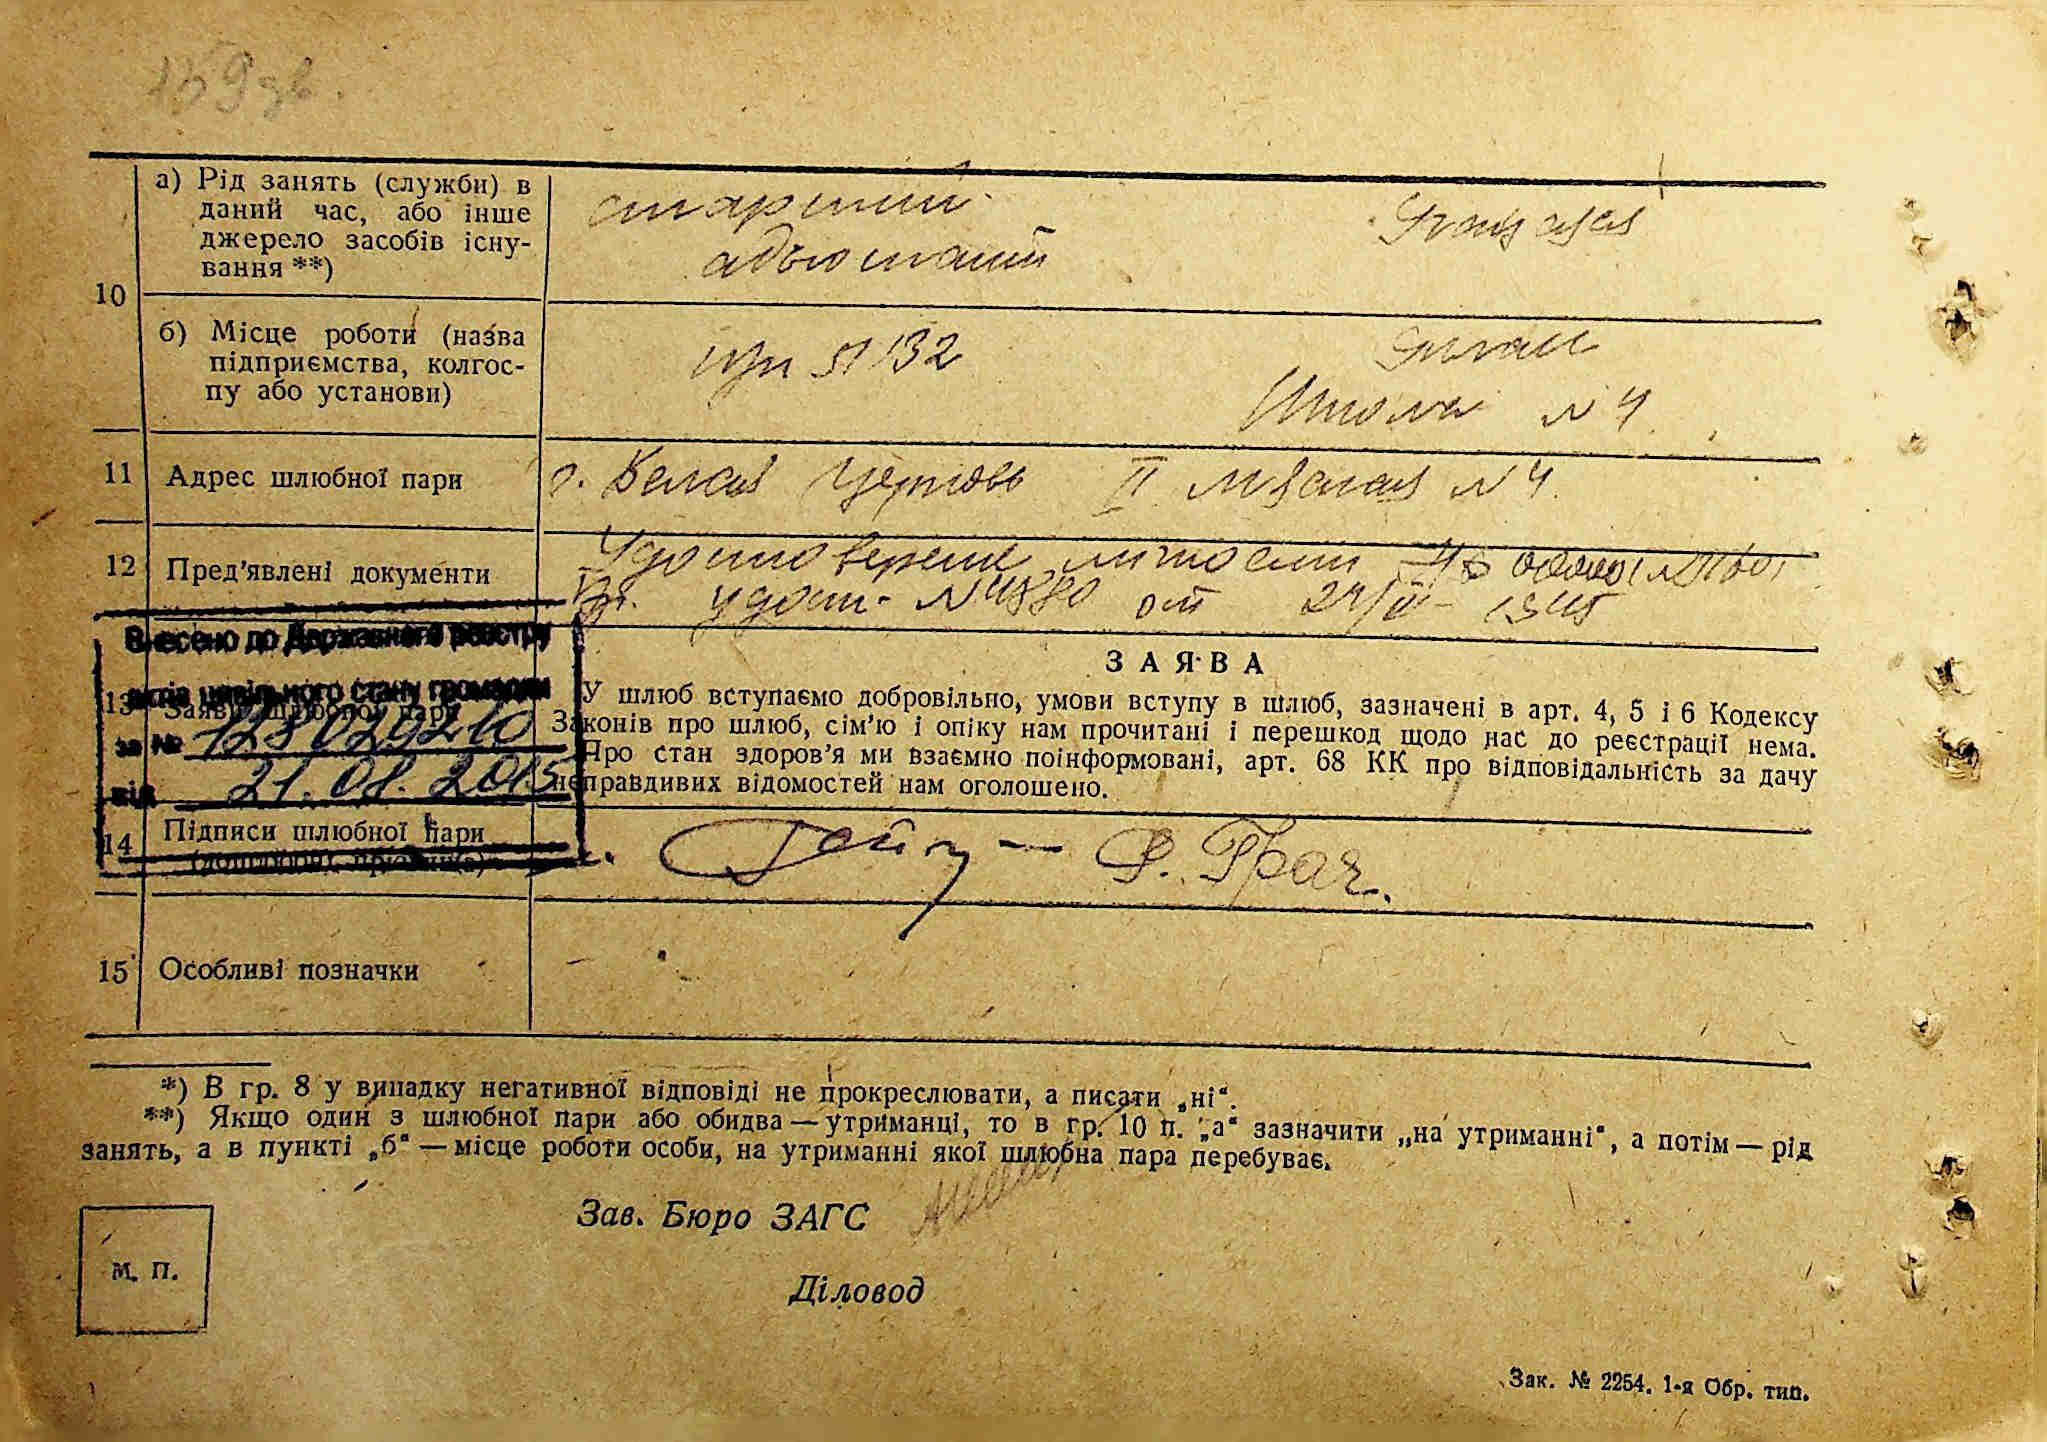 159 зв.
10
а) Рід занять (служби) в
даний час, або інше
джерело засобів існу-
вання **)
старший
адъютант
б) Місце роботи (назва
підприємства, колгос-
пу або установи)
132
Школа N 4
11
Адрес шлюбної пари
г. Белая Церковь II N 4
12
Пред’явлені документи
Удостоверение личности
удост. N 4880 от 1945
Внесено до Державного реєстру
актів цивільного стану громадян
за № 128029210
від 21.01.2015
13
Заява шлюбної пари
ЗАЯВА
У шлюб вступаємо добровільно, умови вступу в шлюб, зазначені в арт. 4, 5 і 6 Кодексу
Законів про шлюб, сім’ю і опіку нам прочитані і перешкод щодо нас до реєстрації нема.
Про стан здоров’я ми взаємно поінформовані, арт. 68 КК про відповідальність за дачу
неправдивих відомостей нам оголошено.
14
Підписи шлюбної пари
(дошлюбні прізвища)
Грач.
15
Особливі позначки
*) В гр. 8 у випадку негативної відповіді не прокреслювати, а писати „ні“.
**) Якщо один з шлюбної пари або обидва — утриманці, то в гр. 10 п. „а“ зазначити „на утриманні“, а потім — рід
занять, а в пункті „б“ — місце роботи особи, на утриманні якої шлюбна пара перебуває.
Зав. Бюро ЗАГС
Діловод
М. П.
Зак. № 2254. 1-я Обр. тип.